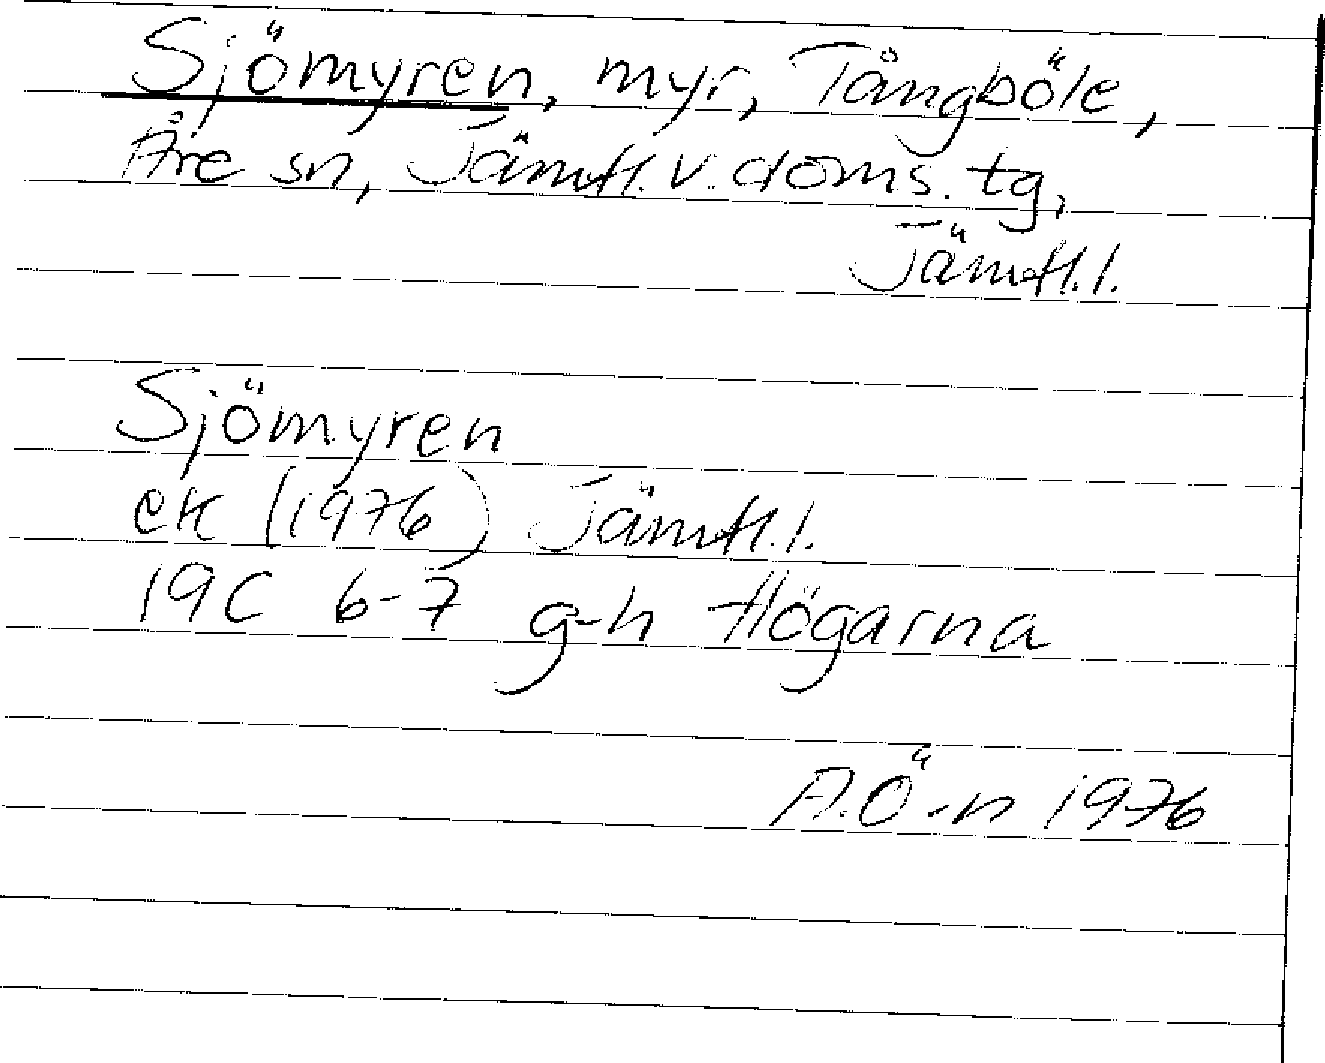 Sjömyren, myr, Tångböle,
Åre sn, Jämtl. v. doms. tg,
Jämtl. l.
Sjömyren
ek (1976) Jämtl. l.
19C 6-7 g-h Högarna
A.Ö-n 1976